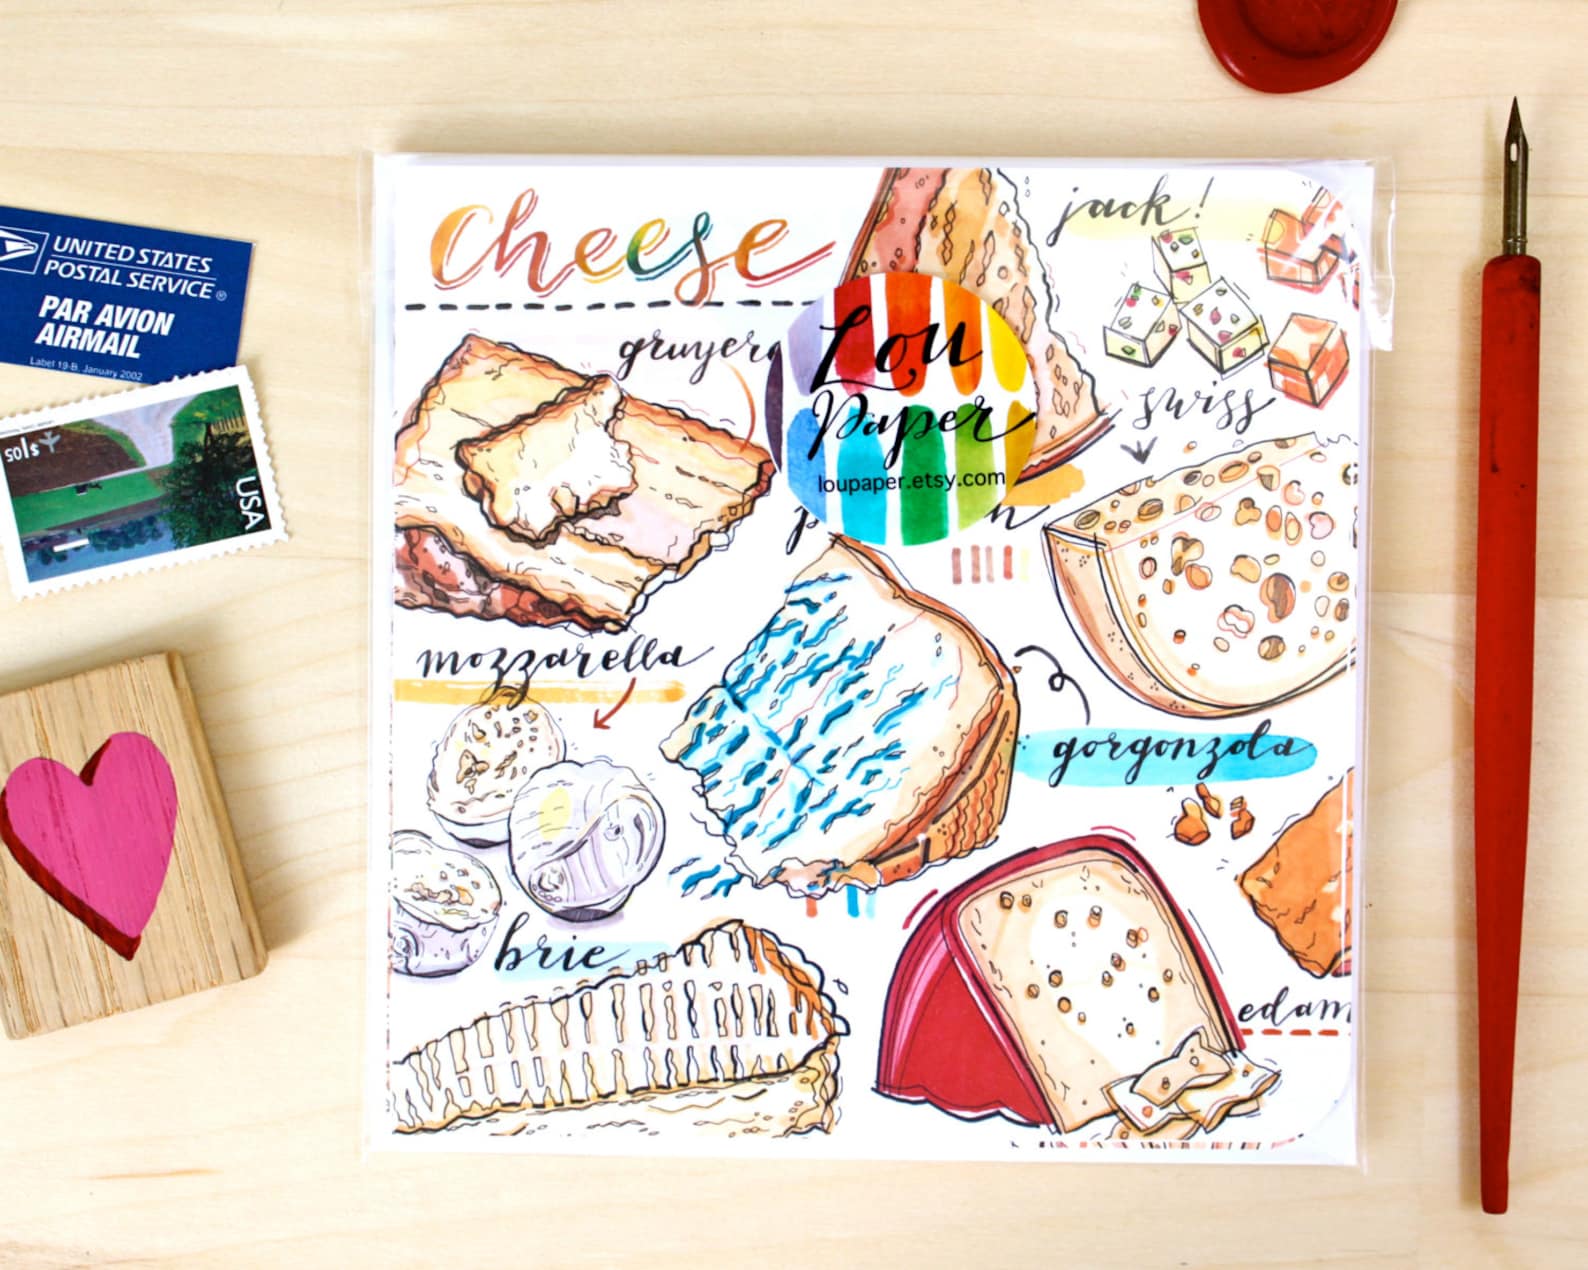 UNITED STATES
POSTAL SERVICE®
PAR AVION
AIRMAIL
Label 19-B, January 2002
USA
Cheese
jack!
gruyere
Lou
Paper
loupaper.etsy.com
swiss
mozzarella
gorgonzola
brie
edam